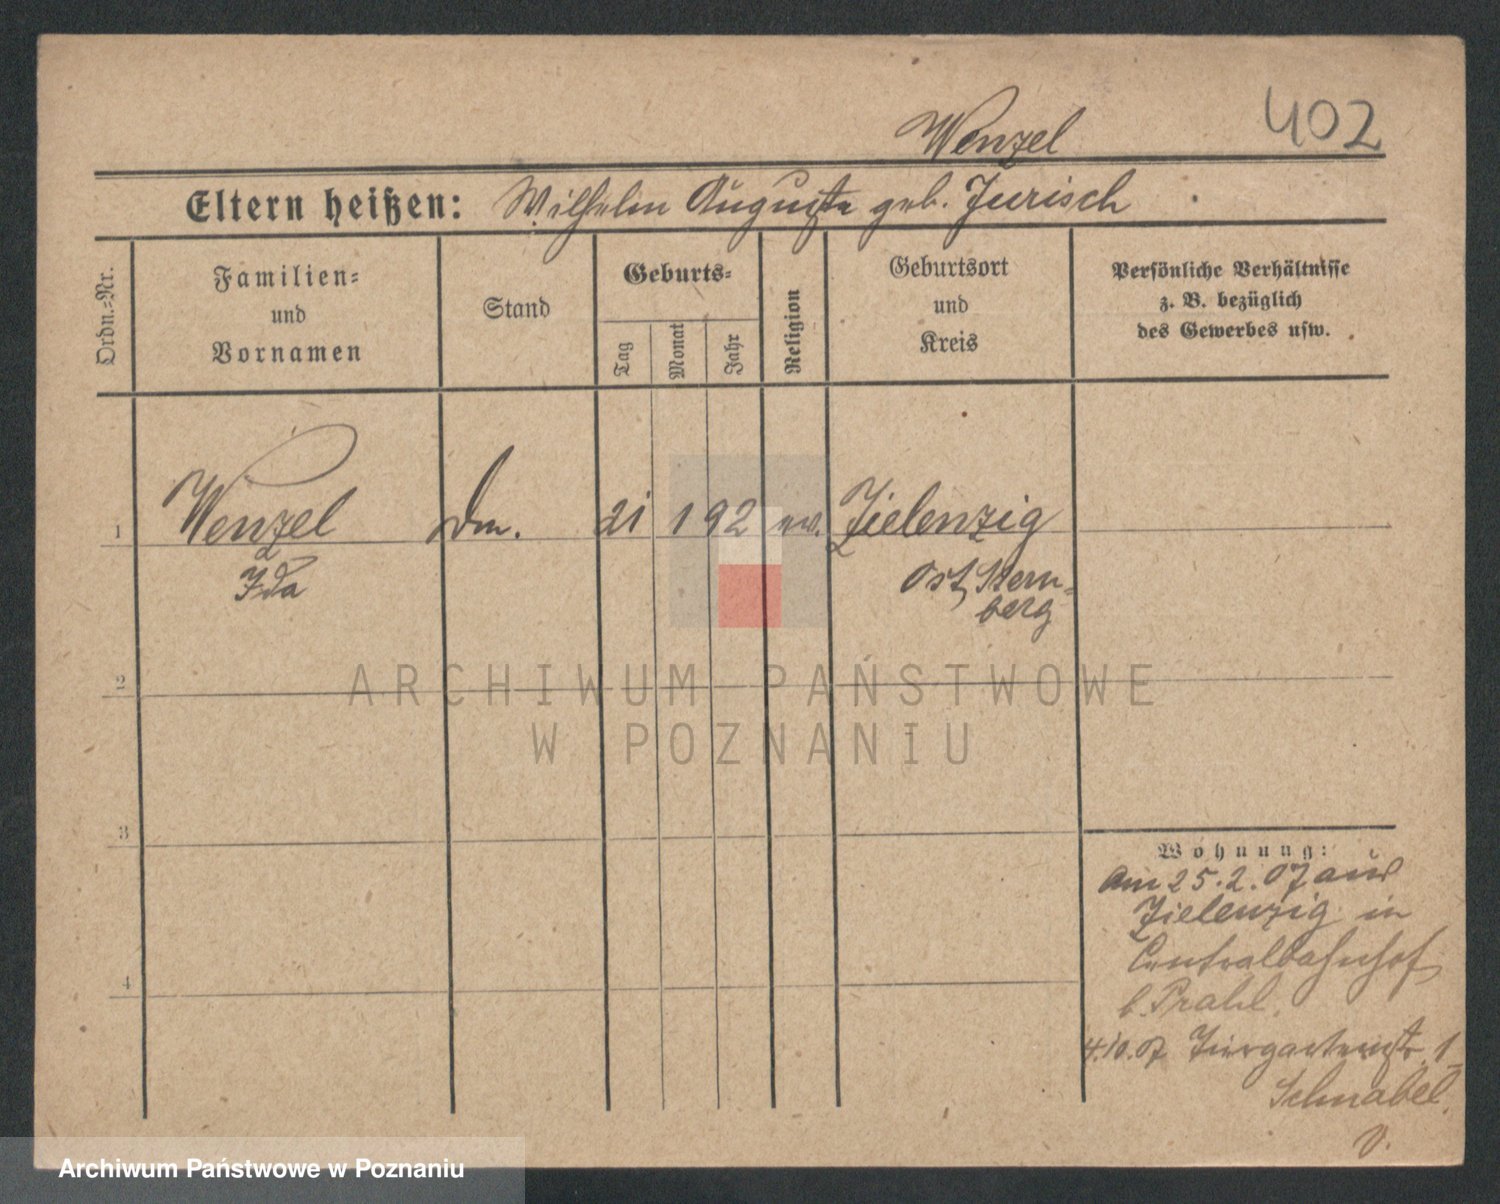 402
Wenzel
Eltern heißen: Wilhelm Auguste geb. Jurisch
Ordn.=Nr.
Familien=
und
Vornamen
Stand
Geburts=
Tag
Monat
Jahr
Religion
Geburtsort
und
Kreis
Persönliche Verhältnisse
z. B. bezüglich
des Gewerbes usw.
1 Wenzel Dm. 21 1 92 ev. Zielenzig
Ida Ost Stern=
berg
2
ARCHIWUM PAŃSTWOWE
W POZNANIU
3
Wohnung:
Am 25.2.07 aus
Zielenzig in
Centralbahnhof
4
b. Prahl.
4.10.07 Tiergartenstr. 1
Schnabel.
Archiwum Państwowe w Poznaniu